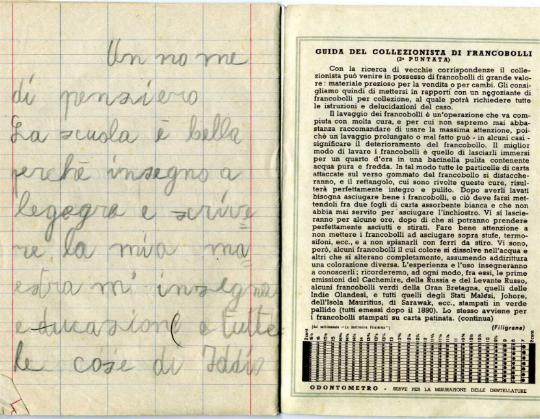 Un no me
di pensiero
La scuola è bella
perchè insegno a
legogre e scrive
re la mia ma
estra m' insegna
educasione e tutte
le cose di Iddio
GUIDA DEL COLLEZIONISTA DI FRANCOBOLLI
(2ª PUNTATA)
Con la ricerca di vecchie corrispondenze il colle-
zionista può venire in possesso di francobolli di grande valo-
re: materiale prezioso per la vendita o per cambi. Gli consi-
gliamo quindi di mettersi in rapporti con un negoziante di
francobolli per collezione, al quale potrà richiedere tutte
le istruzioni e delucidazioni del caso.
Il lavaggio dei francobolli è un'operazione che va com-
piuta con molta cura, e per cui non sapremo mai abba-
stanza raccomandare di usare la massima attenzione, poi-
chè un lavaggio prolungato o mal fatto può - in alcuni casi -
significare il deterioramento del francobollo. Il miglior
modo di lavare i francobolli è quello di lasciarli immersi
per un quarto d'ora in una bacinella pulita contenente
acqua pura e fredda. In tal modo tutte le particelle di carta
attaccate sul verso gommato del francobollo si distacche-
ranno, e il rettangolo, cui sono rivolte queste cure, risul-
terà perfettamente integro e pulito. Dopo averli lavati
bisogna asciugare bene i francobolli, e ciò deve farsi met-
tendoli fra due fogli di carta assorbente bianca e che non
abbia mai servito per asciugare l'inchiostro. Vi si lasce-
ranno per alcune ore, dopo di che si potranno prendere
perfettamente asciutti e stirati. Fare bene attenzione a
non mettere i francobolli ad asciugare sopra stufe, termo-
sifoni, ecc., e a non spianarli con ferri da stiro. Vi sono,
però, alcuni francobolli il cui colore si dissolve nell'acqua e
altri che si alterano completamente, assumendo addirittura
una colorazione diversa. L'esperienza e l'uso insegneranno
a conoscerli; ricorderemo, ad ogni modo, fra essi, le prime
emissioni del Cachemire, della Russia e del Levante Russo,
alcuni francobolli verdi della Gran Bretagna, quelli delle
Indie Olandesi, e tutti quelli degli Stati Malesi, Johore,
dell'Isola Mauritius, di Sarawak, ecc., stampati in verde
pallido (tutti emessi dopo il 1890). Lo stesso avviene per
i francobolli stampati su carta patinata. (continua)
(Filigrana)
ODONTOMETRO - SERVE PER LA MISURAZIONE DELLE DENTELLATURE